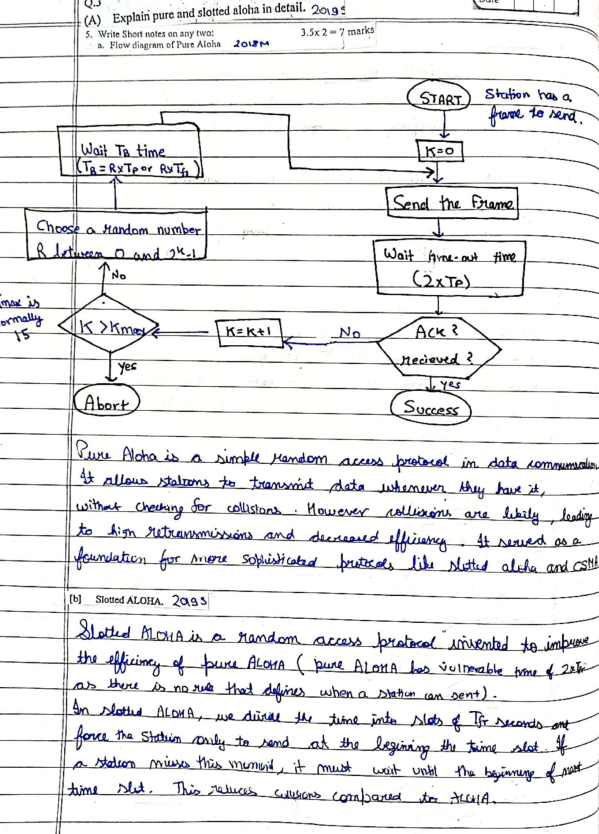 Q.3
(A) Explain pure and slotted aloha in detail. 2019S
5. Write Short notes on any two: 3.5x 2 = 7 marks
a. Flow diagram of Pure Aloha 2018M
START
Station has a
frame to send.
K=0
Wait TB time
(TB = R×TP or R×Tfr)
Send the Frame
Choose a random number
R between 0 and 2^k-1
Wait time-out time
(2×TP)
No
max is
ormally
15
K > Kmax
K = K+1
No
Ack ?
recieved ?
Yes
Yes
Abort
Success
Pure Aloha is a simple random access protocol in data communication.
It allows stations to transmit data whenever they have it,
without checking for collisions. However collisions are likely, leading
to high retransmissions and decreased efficiency. It served as a
foundation for more sophisticated protocols like slotted aloha and CSMA
[b] Slotted ALOHA. 2029S
Slotted ALOHA is a random access protocol invented to improve
the efficiency of pure ALOHA ( pure ALOHA has vulnerable time of 2×Tfr
as there is no rule that defines when a station can sent).
In slotted ALOHA, we divide the time into slots of Tfr seconds and
force the Station only to send at the begining the time slot. If
a station misses this moment, it must wait until the beginning of next
time slot. This reduces collisions compared to ALOHA.